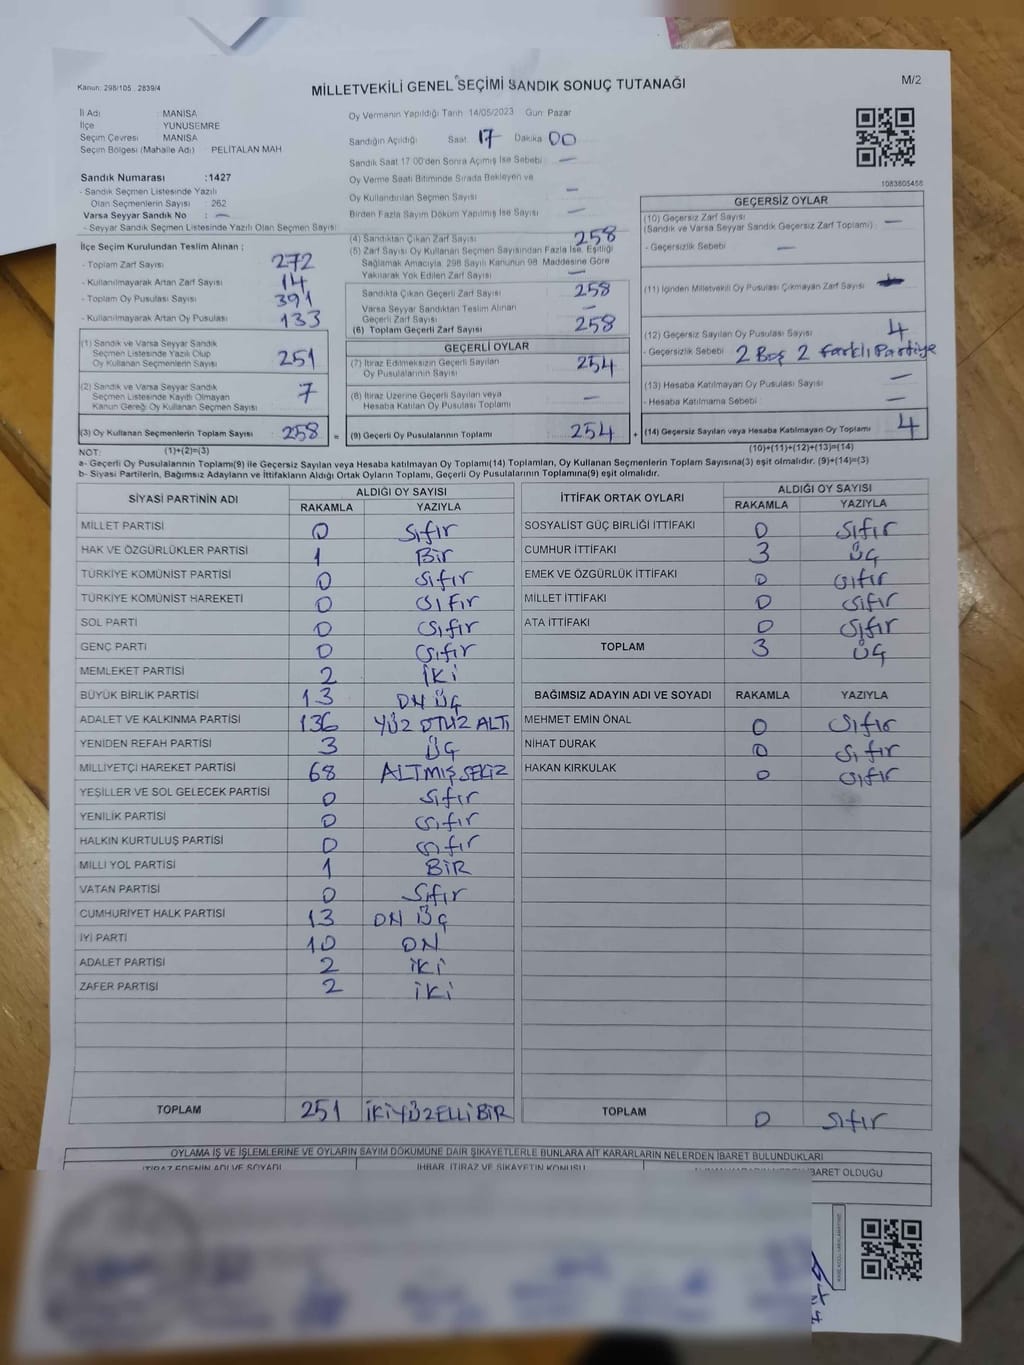 Kanun: 298/105 . 2839/4
MİLLETVEKİLİ GENEL SEÇİMİ SANDIK SONUÇ TUTANAĞI
M/2
İl Adı : MANİSA
İlçe : YUNUSEMRE
Seçim Çevresi : MANİSA
Seçim Bölgesi (Mahalle Adı) : PELİTALAN MAH
Sandık Numarası :1427
- Sandık Seçmen Listesinde Yazılı
Olan Seçmenlerin Sayısı : 262
Varsa Seyyar Sandık No : —
- Seyyar Sandık Seçmen Listesinde Yazılı Olan Seçmen Sayısı
Oy Vermenin Yapıldığı Tarih 14/05/2023 Gün: Pazar
Sandığın Açıldığı Saat 17 Dakika 00
Sandık Saat 17 00'den Sonra Açımış İse Sebebi —
Oy Verme Saati Bitiminde Sırada Bekleyen ve
Oy Kullandırılan Seçmen Sayısı —
Birden Fazla Sayım Döküm Yapılmış İse Sayısı —
1083805458
İlçe Seçim Kurulundan Teslim Alınan ;
- Toplam Zarf Sayısı 272
- Kullanılmayarak Artan Zarf Sayısı 14
- Toplam Oy Pusulası Sayısı 391
- Kullanılmayarak Artan Oy Pusulası 133
(1) Sandık ve Varsa Seyyar Sandık
Seçmen Listesinde Yazılı Olup
Oy Kullanan Seçmenlerin Sayısı 251
(2) Sandık ve Varsa Seyyar Sandık
Seçmen Listesinde Kayıtlı Olmayan
Kanun Gereği Oy Kullanan Seçmen Sayısı 7
(3) Oy Kullanan Seçmenlerin Toplam Sayısı 258 =
(4) Sandıktan Çıkan Zarf Sayısı 258
(5) Zarf Sayısı Oy Kullanan Seçmen Sayısından Fazla İse, Eşitliği
Sağlamak Amacıyla, 298 Sayılı Kanunun 98 Maddesine Göre
Yakılarak Yok Edilen Zarf Sayısı —
Sandıkta Çıkan Geçerli Zarf Sayısı 258
Varsa Seyyar Sandıktan Teslim Alınan
Geçerli Zarf Sayısı —
(6) Toplam Geçerli Zarf Sayısı 258
GEÇERLİ OYLAR
(7) İtiraz Edilmeksizin Geçerli Sayılan
Oy Pusulalarının Sayısı 254
(8) İtiraz Üzerine Geçerli Sayılan veya
Hesaba Katılan Oy Pusulası Toplamı —
(9) Geçerli Oy Pusulalarının Toplamı 254 +
GEÇERSİZ OYLAR
(10) Geçersiz Zarf Sayısı
(Sandık ve Varsa Seyyar Sandık Geçersiz Zarf Toplamı) —
- Geçersizlik Sebebi —
(11) İçinden Milletvekili Oy Pusulası Çıkmayan Zarf Sayısı
(12) Geçersiz Sayılan Oy Pusulası Sayısı 4
- Geçersizlik Sebebi 2 Boş 2 farklı Partiye
(13) Hesaba Katılmayan Oy Pusulası Sayısı —
- Hesaba Katılmama Sebebi : —
(14) Geçersiz Sayılan veya Hesaba Katılmayan Oy Toplamı 4
NOT: (1)+(2)=(3) (10)+(11)+(12)+(13)=(14)
a- Geçerli Oy Pusulalarının Toplamı(9) ile Geçersiz Sayılan veya Hesaba katılmayan Oy Toplamı(14) Toplamları, Oy Kullanan Seçmenlerin Toplam Sayısına(3) eşit olmalıdır. (9)+(14)=(3)
b- Siyasi Partilerin, Bağımsız Adayların ve İttifakların Aldığı Ortak Oyların Toplamı, Geçerli Oy Pusulalarının Toplamına(9) eşit olmalıdır.
SİYASİ PARTİNİN ADI ALDIĞI OY SAYISI
RAKAMLA YAZIYLA
MİLLET PARTİSİ 0 Sıfır
HAK VE ÖZGÜRLÜKLER PARTİSİ 1 Bir
TÜRKİYE KOMÜNİST PARTİSİ 0 Sıfır
TÜRKİYE KOMÜNİST HAREKETİ 0 Sıfır
SOL PARTİ 0 Sıfır
GENÇ PARTİ 0 Sıfır
MEMLEKET PARTİSİ 2 İKİ
BÜYÜK BİRLİK PARTİSİ 13 ON ÜÇ
ADALET VE KALKINMA PARTİSİ 136 YÜZ OTUZ ALTI
YENİDEN REFAH PARTİSİ 3 ÜÇ
MİLLİYETÇİ HAREKET PARTİSİ 68 ALTMIŞ SEKİZ
YEŞİLLER VE SOL GELECEK PARTİSİ 0 Sıfır
YENİLİK PARTİSİ 0 Sıfır
HALKIN KURTULUŞ PARTİSİ 0 Sıfır
MİLLİ YOL PARTİSİ 1 BİR
VATAN PARTİSİ 0 Sıfır
CUMHURİYET HALK PARTİSİ 13 ON ÜÇ
İYİ PARTİ 10 ON
ADALET PARTİSİ 2 İKİ
ZAFER PARTİSİ 2 İKİ
TOPLAM 251 İKİYÜZELLİBİR
İTTİFAK ORTAK OYLARI ALDIĞI OY SAYISI
RAKAMLA YAZIYLA
SOSYALİST GÜÇ BİRLİĞİ İTTİFAKI 0 Sıfır
CUMHUR İTTİFAKI 3 ÜÇ
EMEK VE ÖZGÜRLÜK İTTİFAKI 0 Sıfır
MİLLET İTTİFAKI 0 Sıfır
ATA İTTİFAKI 0 Sıfır
TOPLAM 3 ÜÇ
BAĞIMSIZ ADAYIN ADI VE SOYADI RAKAMLA YAZIYLA
MEHMET EMİN ÖNAL 0 Sıfır
NİHAT DURAK 0 Sıfır
HAKAN KIRKULAK 0 Sıfır
TOPLAM 0 Sıfır
OYLAMA İŞ VE İŞLEMLERİNE VE OYLARIN SAYIM DÖKÜMÜNE DAİR ŞİKAYETLERLE BUNLARA AİT KARARLARIN NELERDEN İBARET BULUNDUKLARI
İTİRAZ EDENİN ADI VE SOYADI İHBAR, İTİRAZ VE ŞİKAYETİN KONUSU İBARET OLDUĞU